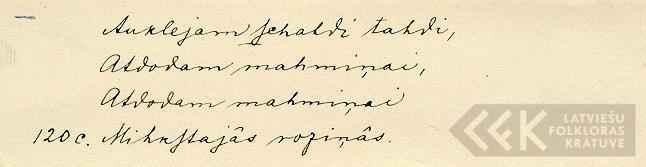 Auklejam schahdi tahdi,
Atdodam mahmiņai,
Atdodam mahmiņai
120c. Mihkstajâs rozīņâs.
LATVIEŠU
FOLKLORAS
KRĀTUVE